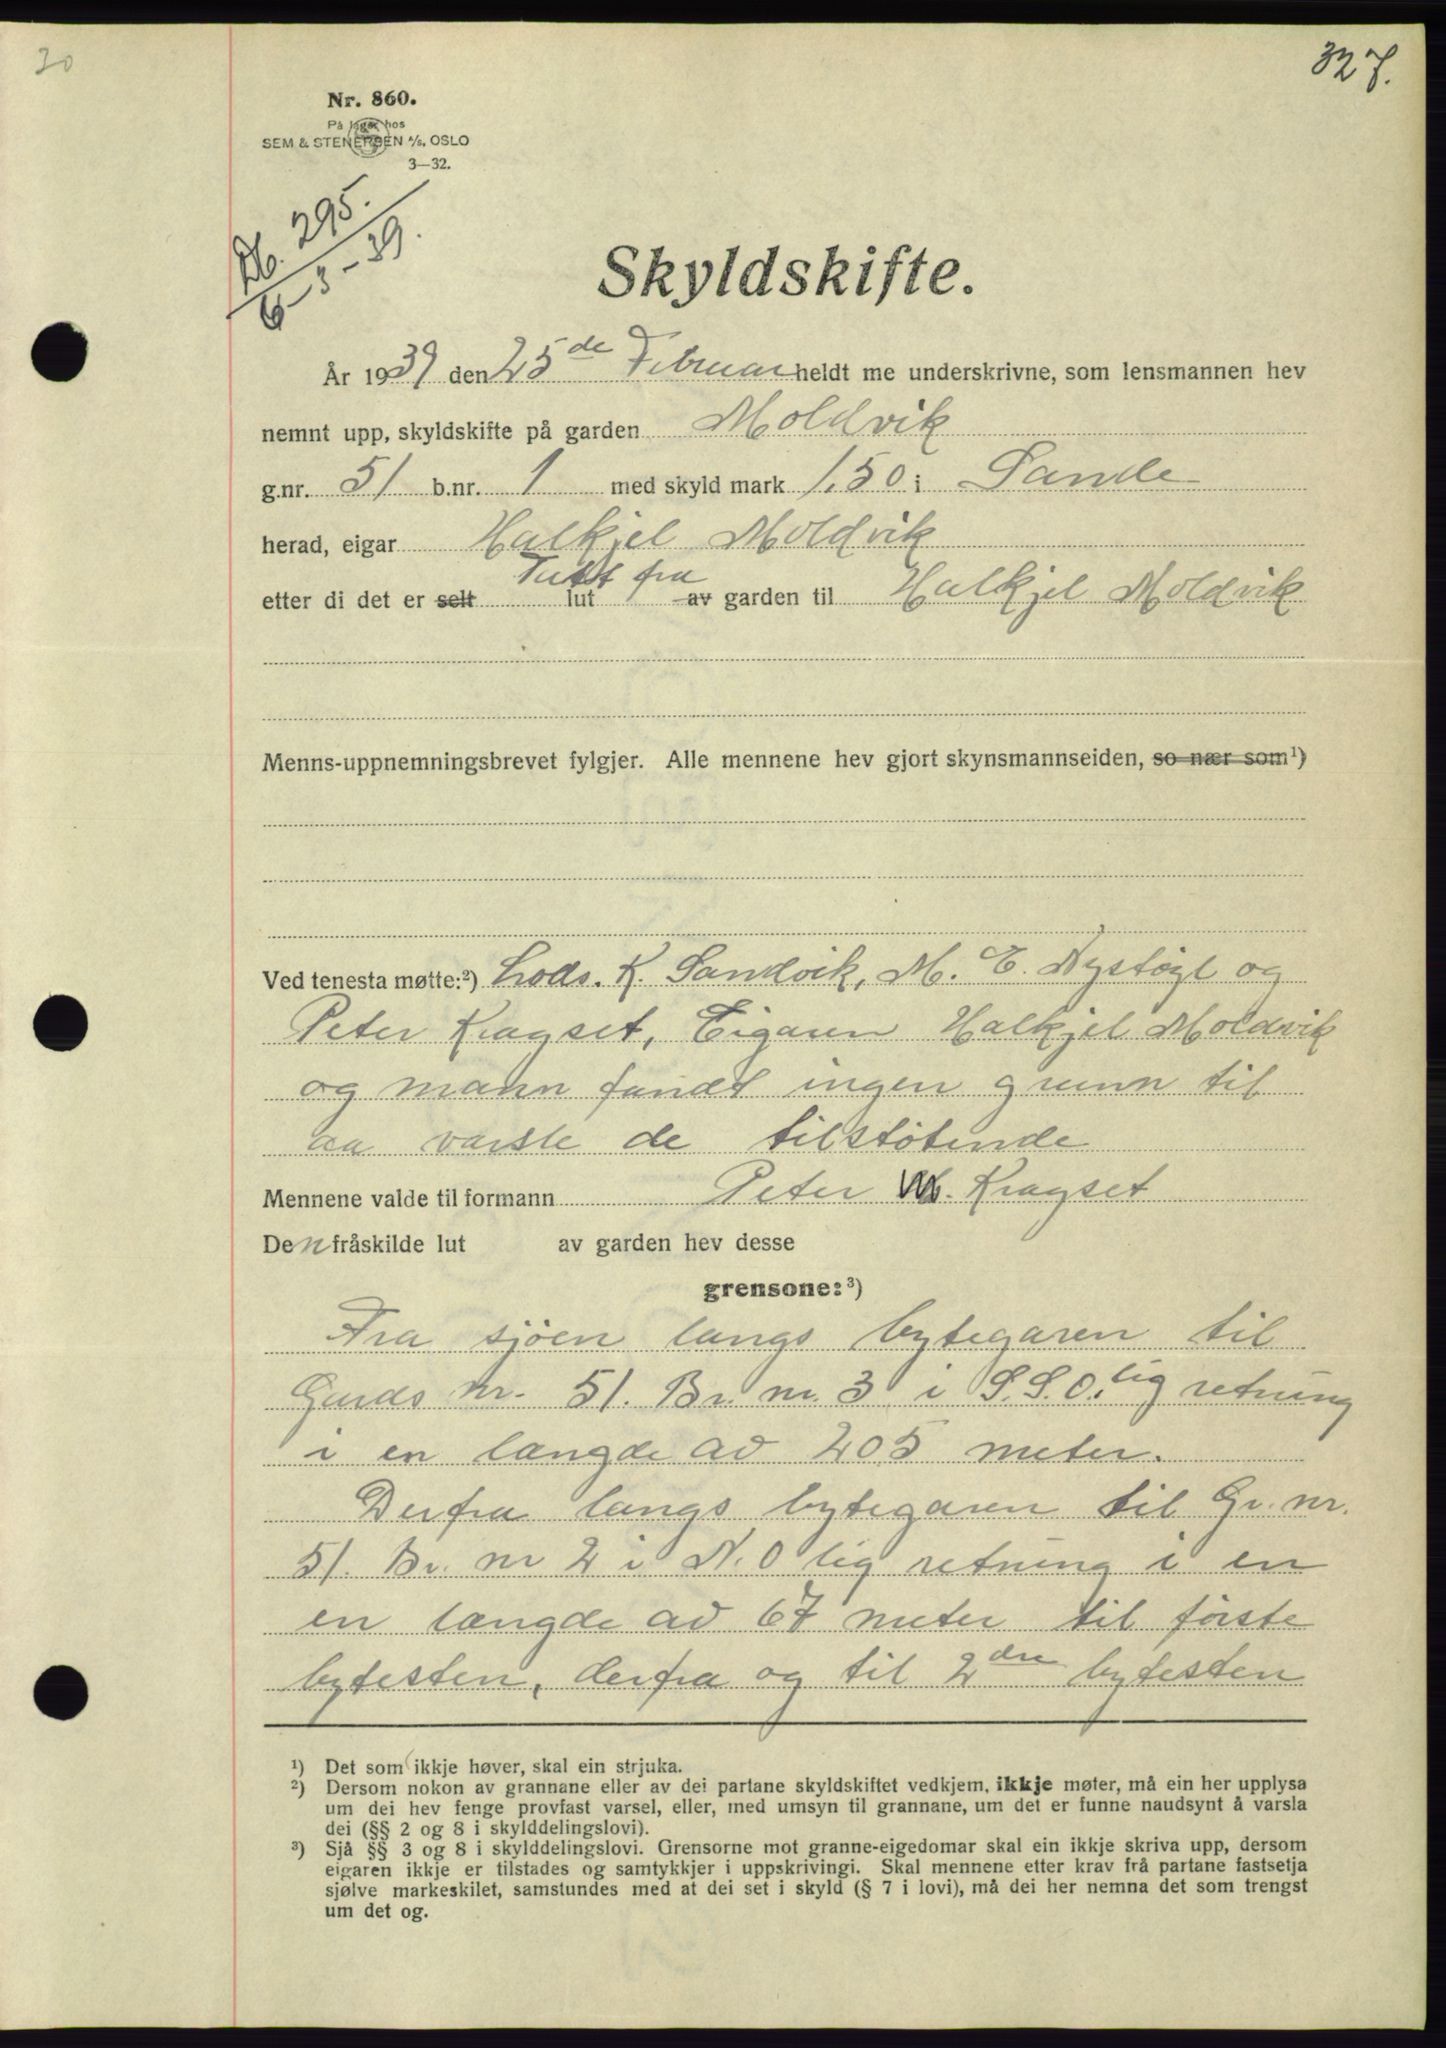 30
327.
Nr. 860.
På lager hos
SEM & STENERSEN A/S, OSLO
3—32.
Db. 295.
6-3-39.
Skyldskifte.
År 1939 den 25de Februar heldt me underskrivne, som lensmannen hev
nemnt upp, skyldskifte på garden Moldvik
g.nr. 51 b.nr. 1 med skyld mark 1,50 i Sande
herad, eigar Halkjel Moldvik
Tatt fra
etter di det er selt lut av garden til Halkjel Moldvik
Menns-uppnemningsbrevet fylgjer. Alle mennene hev gjort skynsmannseiden, so nær som¹)
Ved tenesta møtte:²) Lods. K. Sandvik, M. E. Nystøyl og
Peter Kragset, Eigaren Halkjel Moldvik
og mann fandt ingen grunn til
aa varsle de tilstötende
Mennene valde til formann Peter M. Kragset
Den fråskilde lut av garden hev desse
grensone:³)
Fra sjöen langs bytegaren til
Gards nr. 51. Br. nr. 3 i S.S.O.lig retning
i en længde av 205 meter.
Derfra langs bytegaren til Gr. nr.
51. Br. nr 2 i N.O lig retning i en
en længde av 67 meter til förste
bytesten, derfra og til 2dre bytesten
¹) Det som ikkje høver, skal ein strjuka.
²) Dersom nokon av grannane eller av dei partane skyldskiftet vedkjem, ikkje møter, må ein her upplysa
um dei hev fenge provfast varsel, eller, med umsyn til grannane, um det er funne naudsynt å varsla
dei (§§ 2 og 8 i skylddelingslovi).
³) Sjå §§ 3 og 8 i skylddelingslovi. Grensorne mot granne-eigedomar skal ein ikkje skriva upp, dersom
eigaren ikkje er tilstades og samtykkjer i uppskrivingi. Skal mennene etter krav frå partane fastsetja
sjølve markeskilet, samstundes med at dei set i skyld (§ 7 i lovi), må dei her nemna det som trengst
um det og.